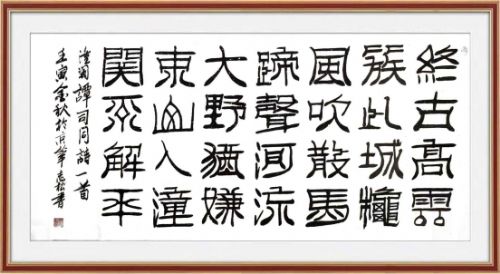 終古高雲
簇此城龝
風吹散馬
蹄聲河流
大野猶嫌
束山入潼
關不解平
潼關譚司同詩一首
壬寅金秋於京華 書